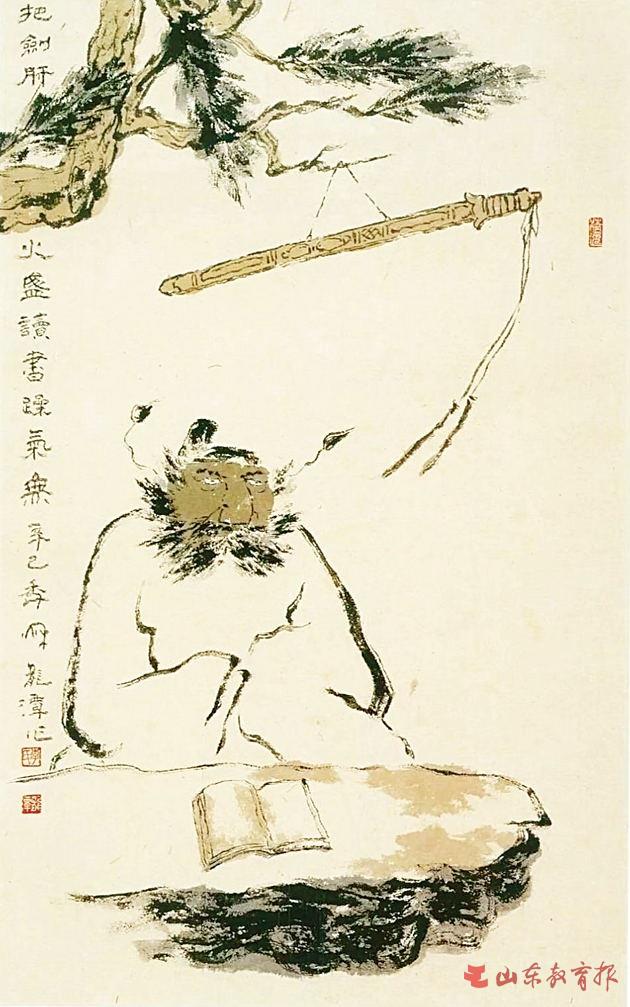 把劍肝
火盛讀書躁氣無 辛巳 龍潭作
山东教育报